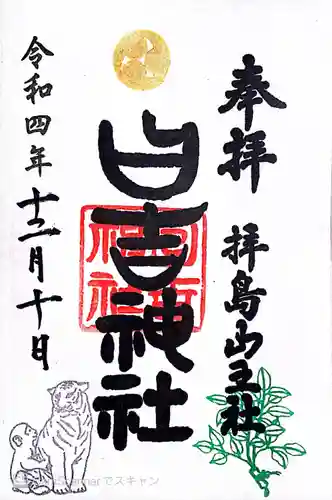 奉拝
拝島山王社
日吉神社
令和四年十二月十日
Scannerでスキャン